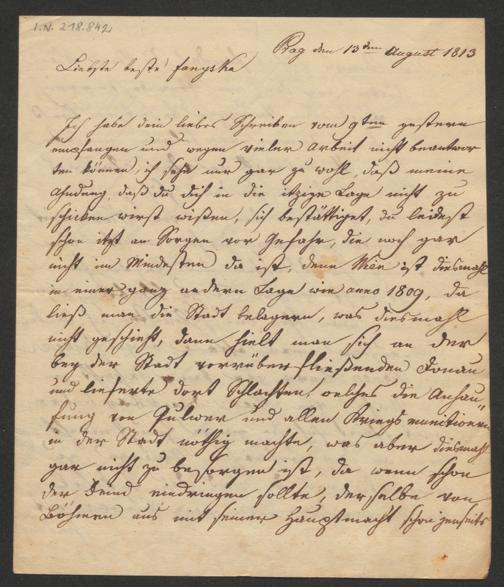 I.N. 218.842
Prag den 13ten August 1813
Liebste beste
Ich habe dein liebes Schreiben vom 9ten gestern
empfangen und wegen vieler Arbeit nicht beantwor
ten können, ich sehe nur gar zu wohl, daß meine
Ahndung, daß du dich in die itzige Lage nicht zu
schicken wirst wißen, sich bestättiget, du leidest
schon itzt an Sorgen vor Gefahr, die noch gar
nicht im Mindesten da ist, denn Wien ist diesmahl
in einer ganz andern Lage wie anno 1809, da
ließ man die Stadt belagern, was diesmahl
nicht geschieht, dann hielt man sich an der
bey der Stadt vorrüber fließenden Donau
und lieferte dort Schlachten, welches die Anhäu
fung von Pulver und allen Kriegsmunitionen
in der Stadt nöthig machte, was aber diesmahl
gar nicht zu besorgen ist, da wenn schon
der Feind eindringen sollte, derselbe von
Böhmen aus mit seiner Hauptmacht schon jenseits